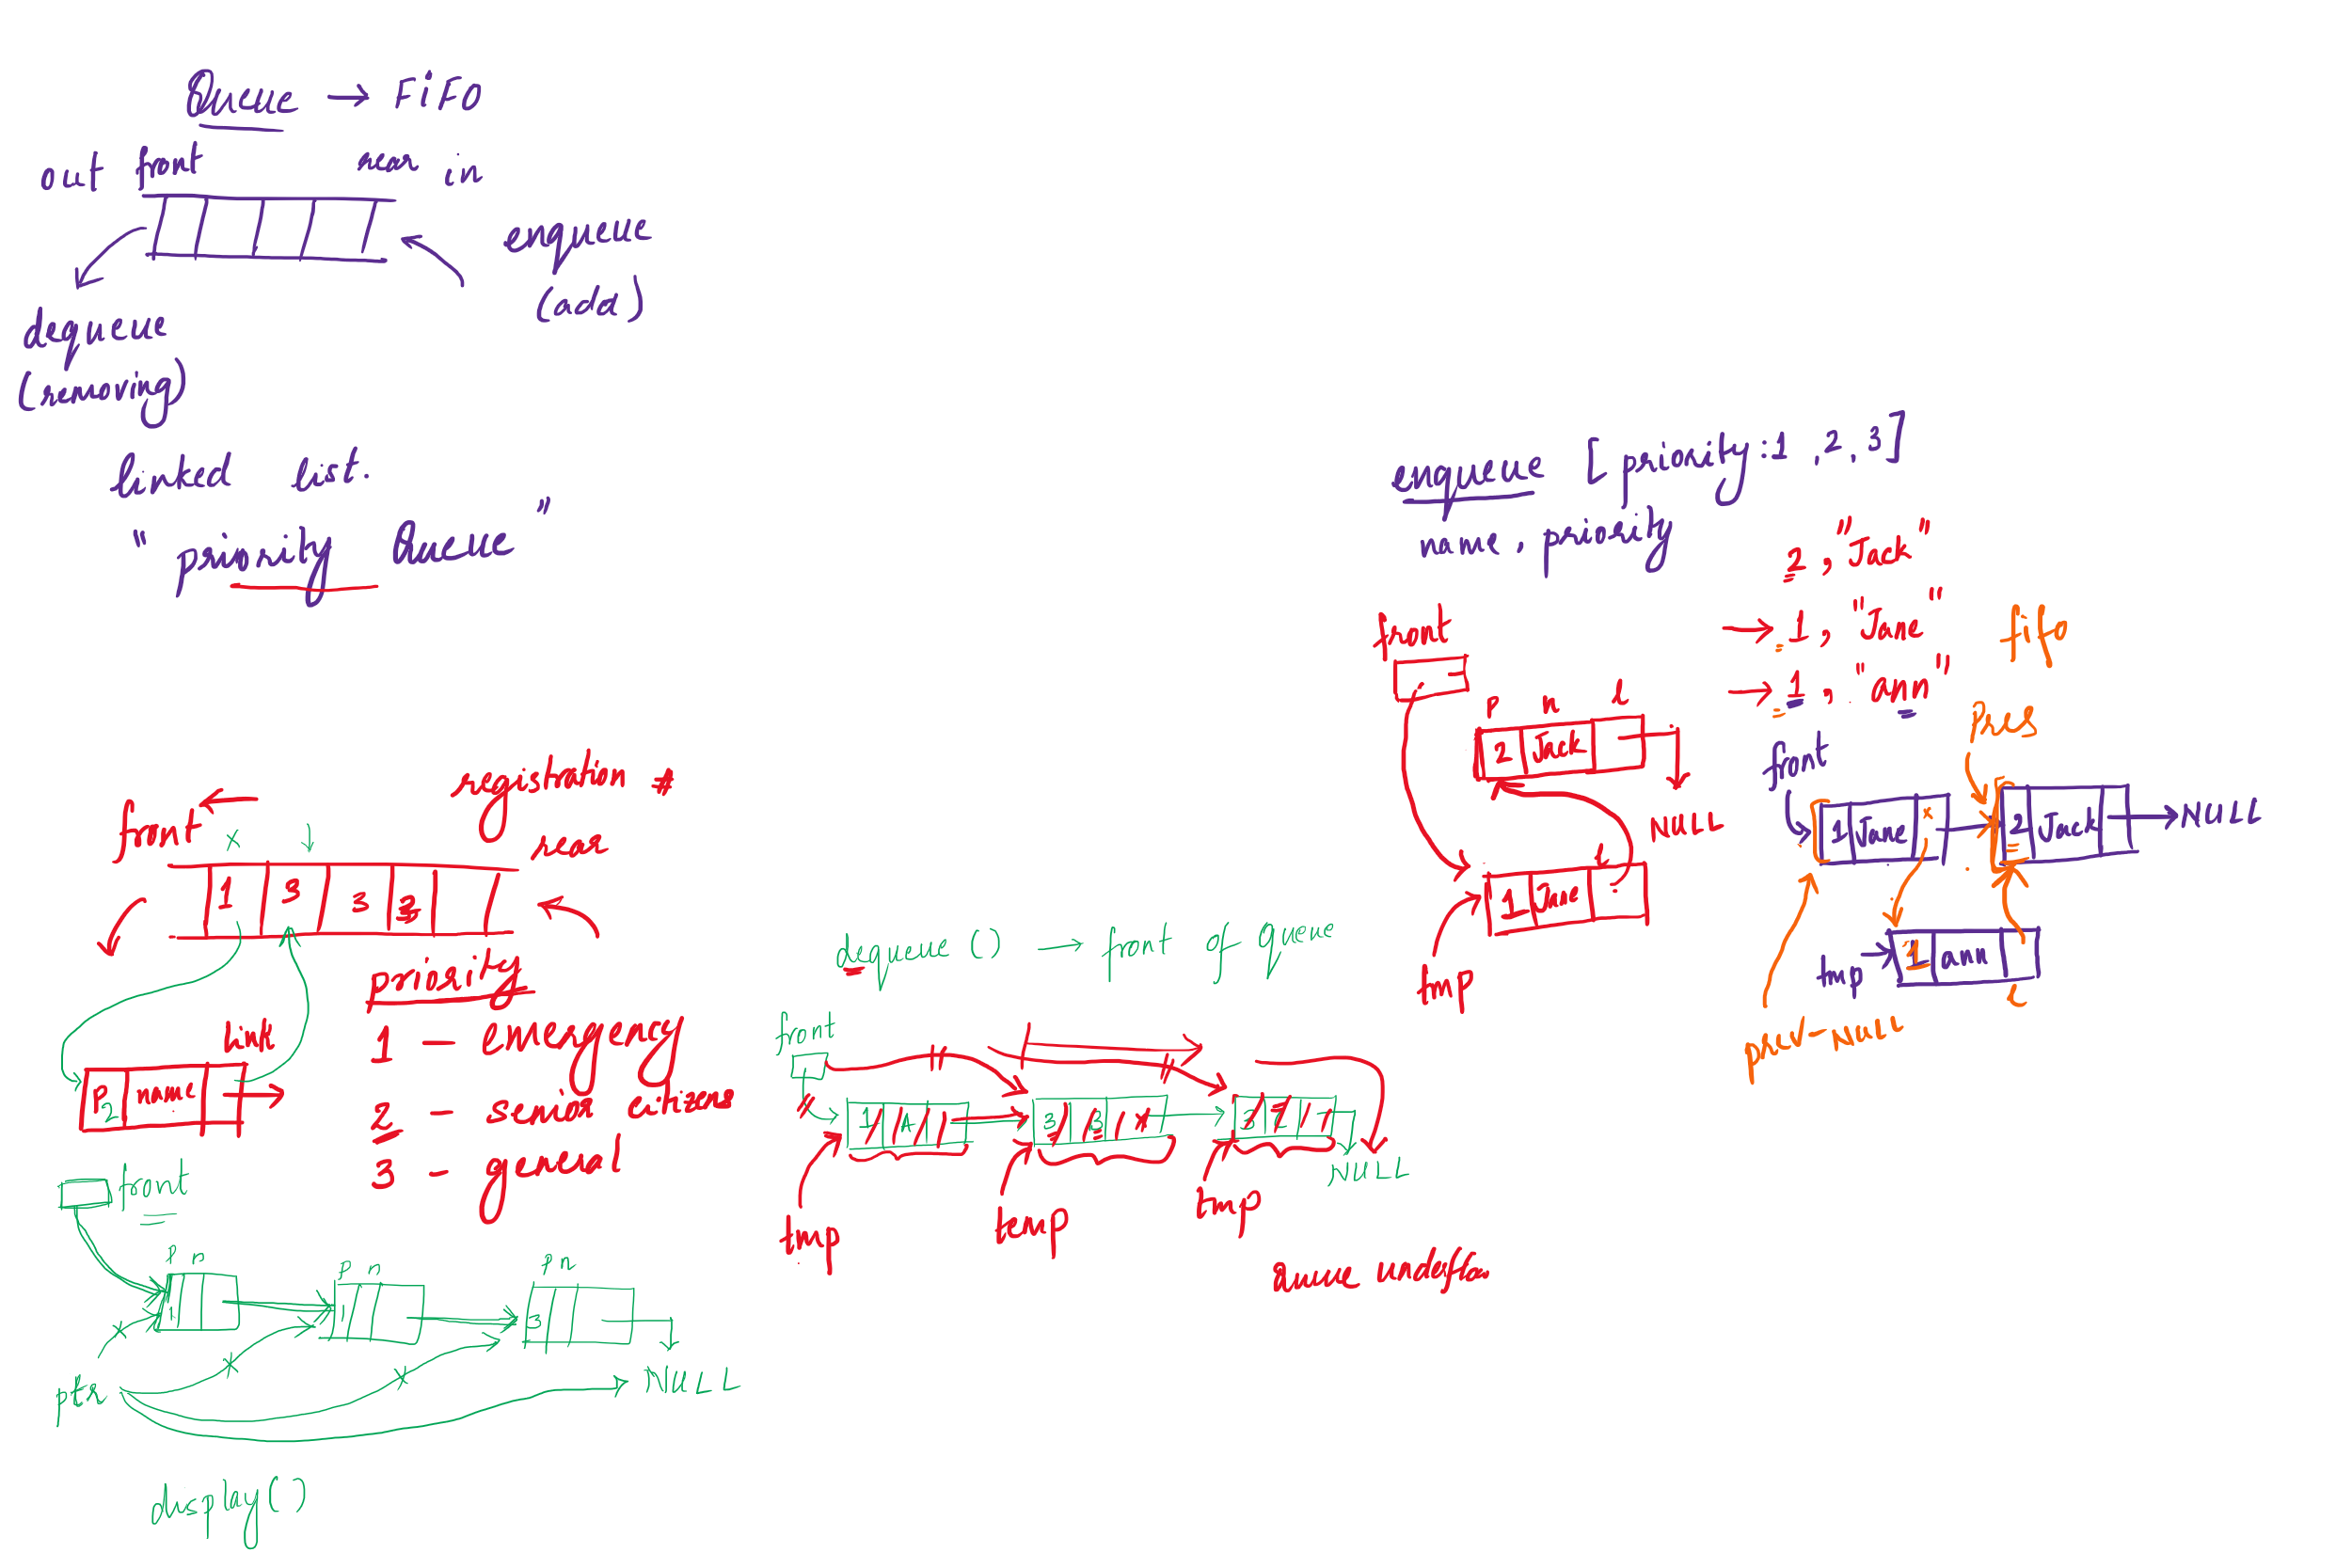 Queue → FiFO
out front rear in
enqueue
(add)
dequeue
(removing)
linked list.
"priority Queue"
registration #
front ←
rear
1 3 3 3
priority
1 - emergency
2 - senior citizens
3 - general
link
P 2 name
front
P n
P n
P n
1
1
3
ptr
NULL
display()
dequeue() → front of queue
front
1 A
3 B
3
NULL
tmp
temp
tmp
queue underflow
enqueue [priority: 1, 2, 3]
name, priority
2, "Jack"
→ 1, "Jane"
→ 1, "ann"
fifo
front
P n l
2 Jack
NULL
l
1 Jane
tmp
front
1 Jane x
2 Jack → NULL
tmp
1 ann
L